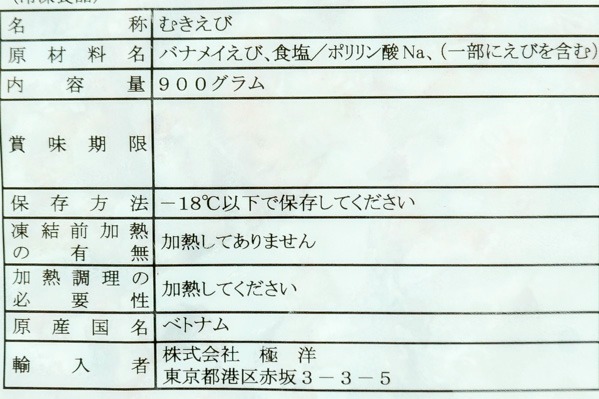 名称 むきえび
原材料名 バナメイえび、食塩／ポリリン酸Na、（一部にえびを含む）
内容量 ９００グラム
賞味期限
保存方法 －18℃以下で保存してください
凍結前加熱の有無 加熱してありません
加熱調理の必要性 加熱してください
原産国名 ベトナム
輸入者 株式会社 極洋
東京都港区赤坂３－３－５